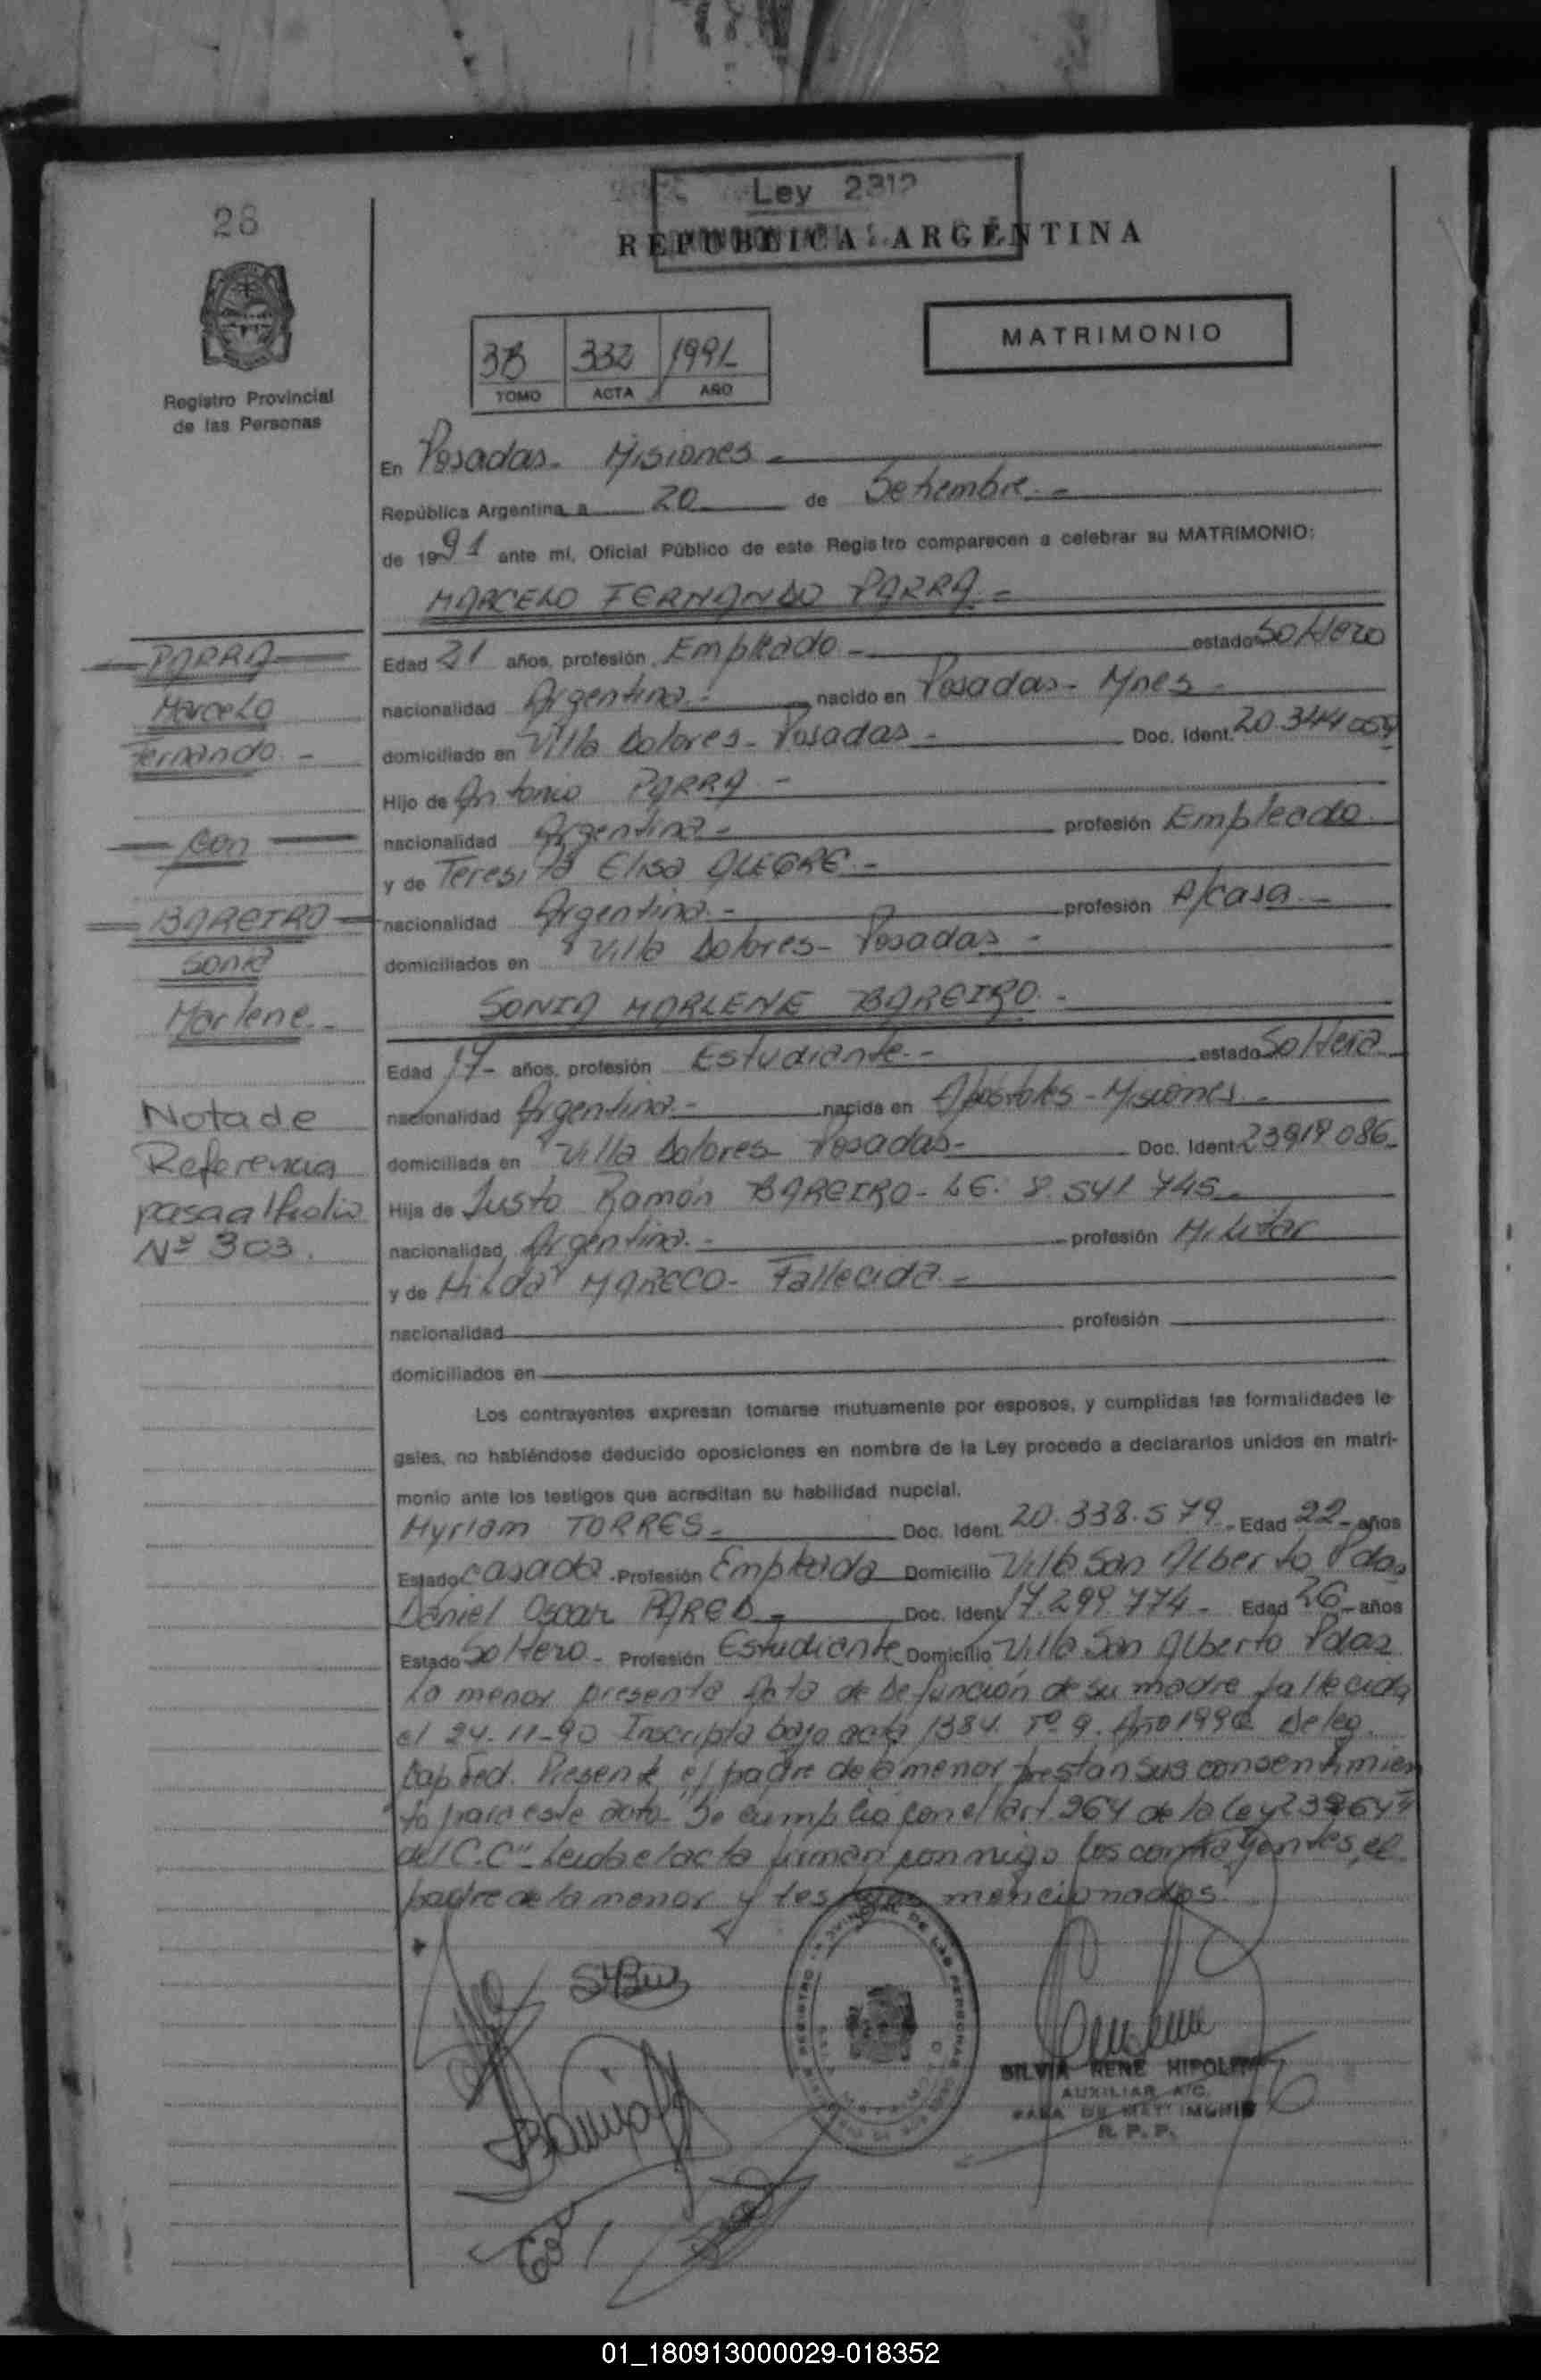 Ley 2312
28
REPUBLICA ARGENTINA
MATRIMONIO
3B 332 1991
TOMO ACTA AÑO
Registro Provincial
de las Personas
En Posadas - Misiones -
República Argentina, a 20 de Setiembre -
de 1991 ante mí, Oficial Público de este Registro comparecen a celebrar su MATRIMONIO:
MARCELO FERNANDO PARRA -
PARRA
Marcelo
Fernando -
con
BAREIRO
Sonia
Marlene -
Nota de
Referencia
pasa al folio
Nº 303.
Edad 21 años, profesión Empleado - estado Soltero
nacionalidad Argentina - nacido en Posadas - Mnes -
domiciliado en Villa Dolores - Posadas - Doc. Ident. 20.344.054
Hijo de Antonio PARRA -
nacionalidad Argentina - profesión Empleado
y de Teresita Elisa ALEGRE -
nacionalidad Argentina - profesión A/casa -
domiciliados en Villa Dolores - Posadas -
SONIA MARLENE BAREIRO -
Edad 17 - años, profesión Estudiante - estado Soltera
nacionalidad Argentina - nacida en Apóstoles - Misiones -
domiciliada en Villa Dolores - Posadas - Doc. Ident. 23.917.086 -
Hija de Justo Ramón BAREIRO - LE. 8.541 745 -
nacionalidad Argentina - profesión Militar
y de Hilda MARECO - Fallecida -
nacionalidad profesión
domiciliados en
Los contrayentes expresan tomarse mutuamente por esposos, y cumplidas las formalidades le-
gales, no habiéndose deducido oposiciones en nombre de la Ley procedo a declararlos unidos en matri-
monio ante los testigos que acreditan su habilidad nupcial.
Myriam TORRES - Doc. Ident. 20.338.579 - Edad 22 - años
Estado casada - Profesión Empleada Domicilio Villa San Alberto Pdas
Daniel Oscar PARED - Doc. Ident. 17.299.774 - Edad 26 - años
Estado Soltero - Profesión Estudiante Domicilio Villa San Alberto Pdas
La menor presenta Acta de Defunción de su madre fallecida
el 24-11-90 Inscripta bajo acta 1384. Tº 9. Año 1990 Deleg.
Cap Fed. Presente el padre de la menor prestan sus consentimien
to para este acto - Se cumplió con el art. 264 de la Ley
del C.C" - Leída el acta firman conmigo los contrayentes, el
padre de la menor y testigos mencionados.
REGISTRO PROVINCIAL DE LAS PERSONAS
SILVIA RENE HIPOLITO
AUXILIAR A/C.
SALA DE MATRIMONIO
R. P. P.
01_180913000029-018352